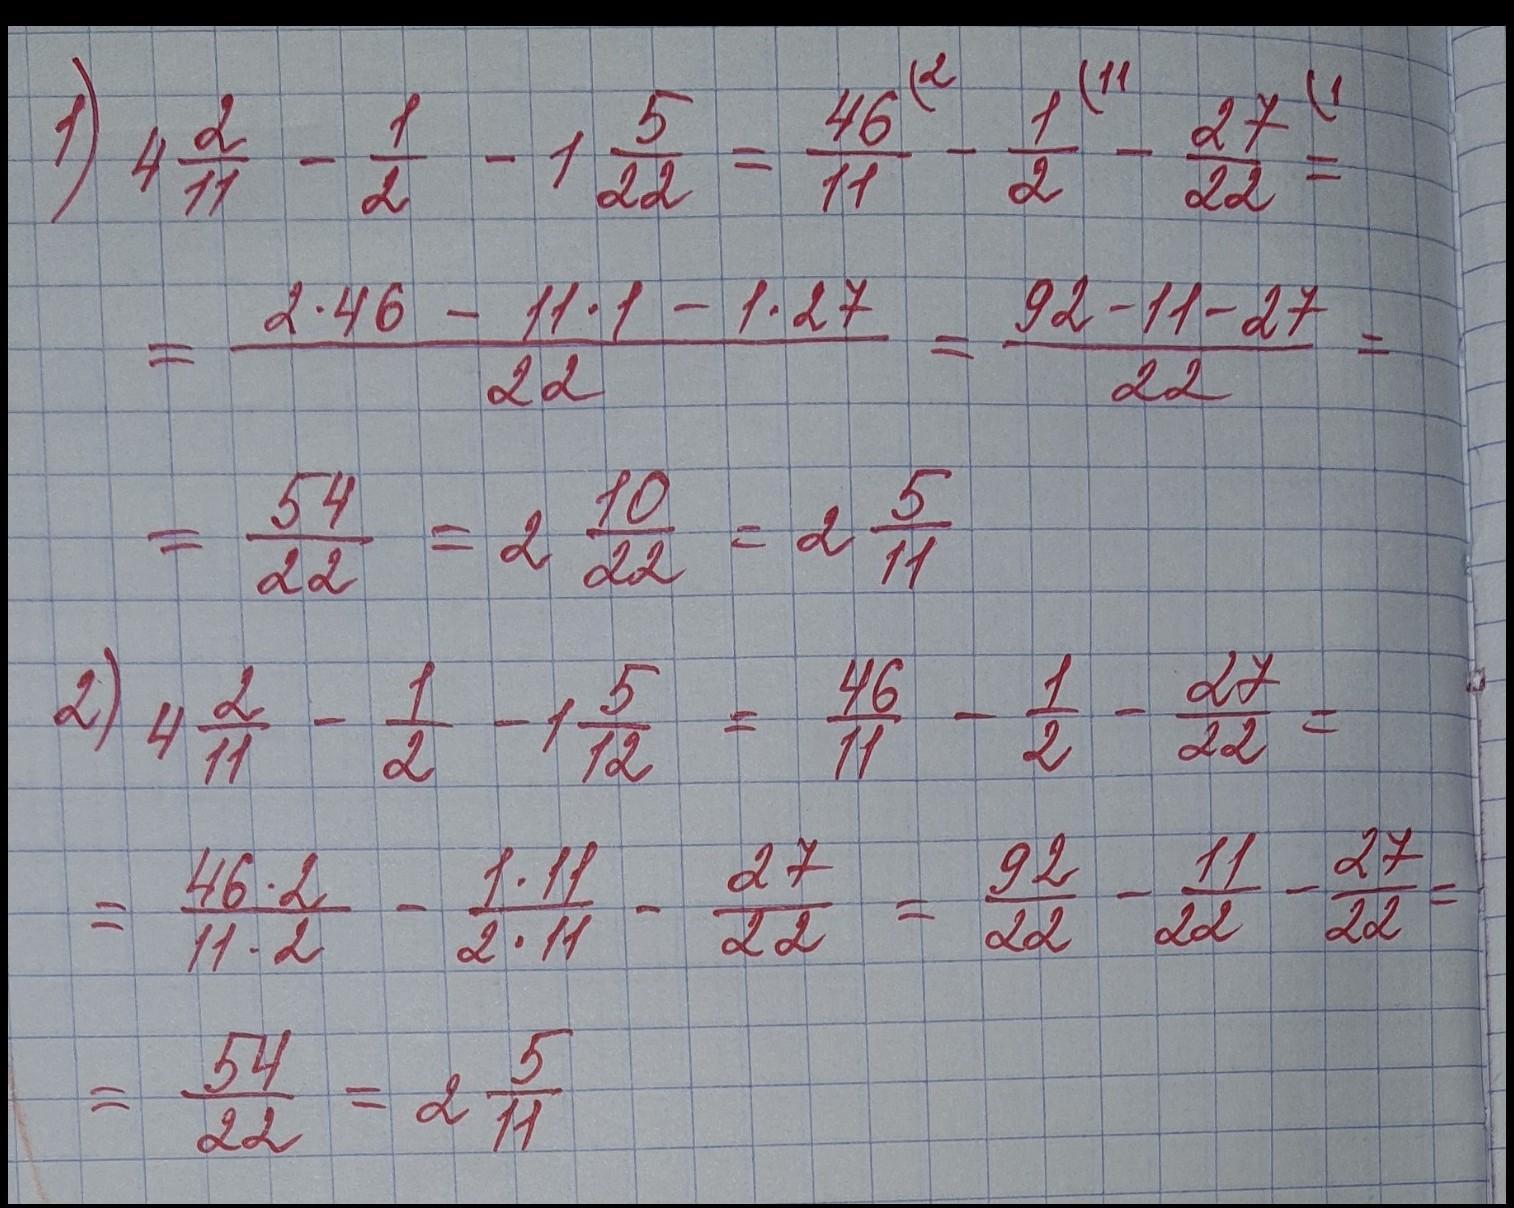 1) 4 2/11 - 1/2 - 1 5/22 = 46/11 (2 - 1/2 (11 - 27/22 (1 =
= (2·46 - 11·1 - 1·27)/22 = (92-11-27)/22 =
= 54/22 = 2 10/22 = 2 5/11
2) 4 2/11 - 1/2 - 1 5/12 = 46/11 - 1/2 - 27/22 =
= (46·2)/(11·2) - (1·11)/(2·11) - 27/22 = 92/22 - 11/22 - 27/22 =
= 54/22 = 2 5/11